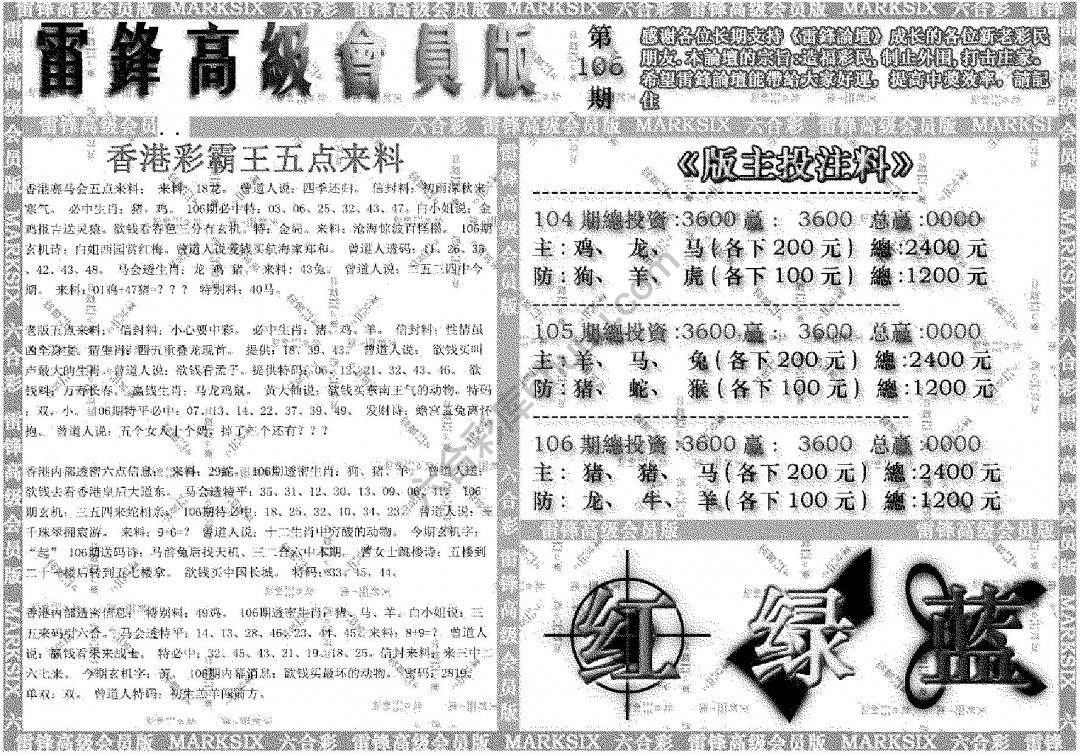 MARKSIX 六合彩 雷鋒高级会员版 MARKSIX 六合彩 雷鋒高级会员版 MARKSIX
雷鋒高級會員版
第
106
期
感谢各位长期支持《雷鋒論壇》成长的各位新老彩民
朋友.本論壇的宗旨:造福彩民,制止外围,打击庄家.
希望雷鋒論壇能帶給大家好運，提高中獎效率，請記
住
雷鋒高级会员版
六合彩 雷鋒高级会员版 MARKSIX 六合彩 雷鋒高级会员版 MARKSI
香港彩霸王五点来料
香港赛马会五点来料： 来料：18龙。 曾道人说：四季还归。 信封料：初雨深秋来
寒气。 必中生肖：猪、鸡。 106期必中特：03、06、25、32、43、47。白小姐说：金
鸡报吉送灵猿。欲钱看春色三分有玄机 特：金局。来料：沧海惊波百怪楼。 106期
玄机诗：白如西园赏红梅。曾道人说爱钱买航海家郑和。 曾道人透码： 26、33
、42、43、48。 马会透生肖：龙 鸡 猪。 来料：43兔。 曾道人说：二五三四中今
期。 来料：01鸡+47猪=？？？ 特别料：40马。
老版五点来料： 信封料：小心要中彩。 必中生肖：猪、鸡、羊。 信封料：性情虽
凶全身宝。猜生肖：四五重叠龙现首。 提供：18、39、43。 曾道人说： 欲钱买叫
声最大的生肖。曾道人说：欲钱看孟子。提供特码：06、12、21、32、43、46。 欲
钱料：万寿长存。 赢钱生肖：马龙鸡鼠。 黄大仙说：欲钱买东南王气的动物。特码
：双、小。 106期特平必中：07、13、14、22、37、39、49、 发财诗：蟾宫 兔离怀
抱。 曾道人说：五个女人十个码，掉了三个还有？？？
香港内部透密六点信息： 来料：29蛇。 106期透密生肖：狗、猪、羊。 曾道人送：
欲钱去看香港皇后大道东。 马会透特平：35、31、12、30、13、09、06、11。 106
期玄机：三五四来蛇相亲。 106期特必中：18、25、32、10、34、23。 曾道人说：一
千珠翠拥宸游。 来料：9+6=？ 曾道人说：十二生肖中穷酸的动物。 今期玄机字：
“起” 106期送码诗：马前兔后找天机、三二合六中本期。 曹女士跳楼诗：五楼到
二十一楼后转到五七楼拿。 欲钱买中国长城。 特码：33、45、44。
香港内部透密信息： 特别料：49鸡。 106期透密生肖：猪、马、羊。白小姐说：三
五来码对六合。马会透特平：14、13、28、46、23、44、45 来料：8+9=？ 曾道人
说：赢钱看果来战士。 特必中：32、45、43、21、19、18、25。信封来料：来三中二
六七来。 今期玄机字：苦。 106期内幕消息：欲钱买最坏的动物。 密码：2819。
单双：双。 曾道人特码：初生三羊闯前方。
《版主投注料》
104 期總投资:3600 赢： 3600 总赢:0000
主：鸡、 龙、 马(各下 200 元) 總:2400 元
防：狗、 羊、 虎(各下 100 元) 總:1200 元
105 期總投资:3600 赢： 3600 总赢:0000
主：羊、 马、 兔(各下 200 元) 總:2400 元
防：猪、 蛇、 猴(各下 100 元) 總:1200 元
106 期總投资:3600 赢： 3600 总赢:0000
主：猪、 猪、 马(各下 200 元) 總:2400 元
防：龙、 牛、 羊(各下 100 元) 總:1200 元
雷鋒高级会员版
雷鋒高级会员版
红 绿 蓝
雷鋒高级会员版 MARKSIX 六合彩 雷鋒高级会员版 MARKSIX 六合彩 雷鋒高级会员版